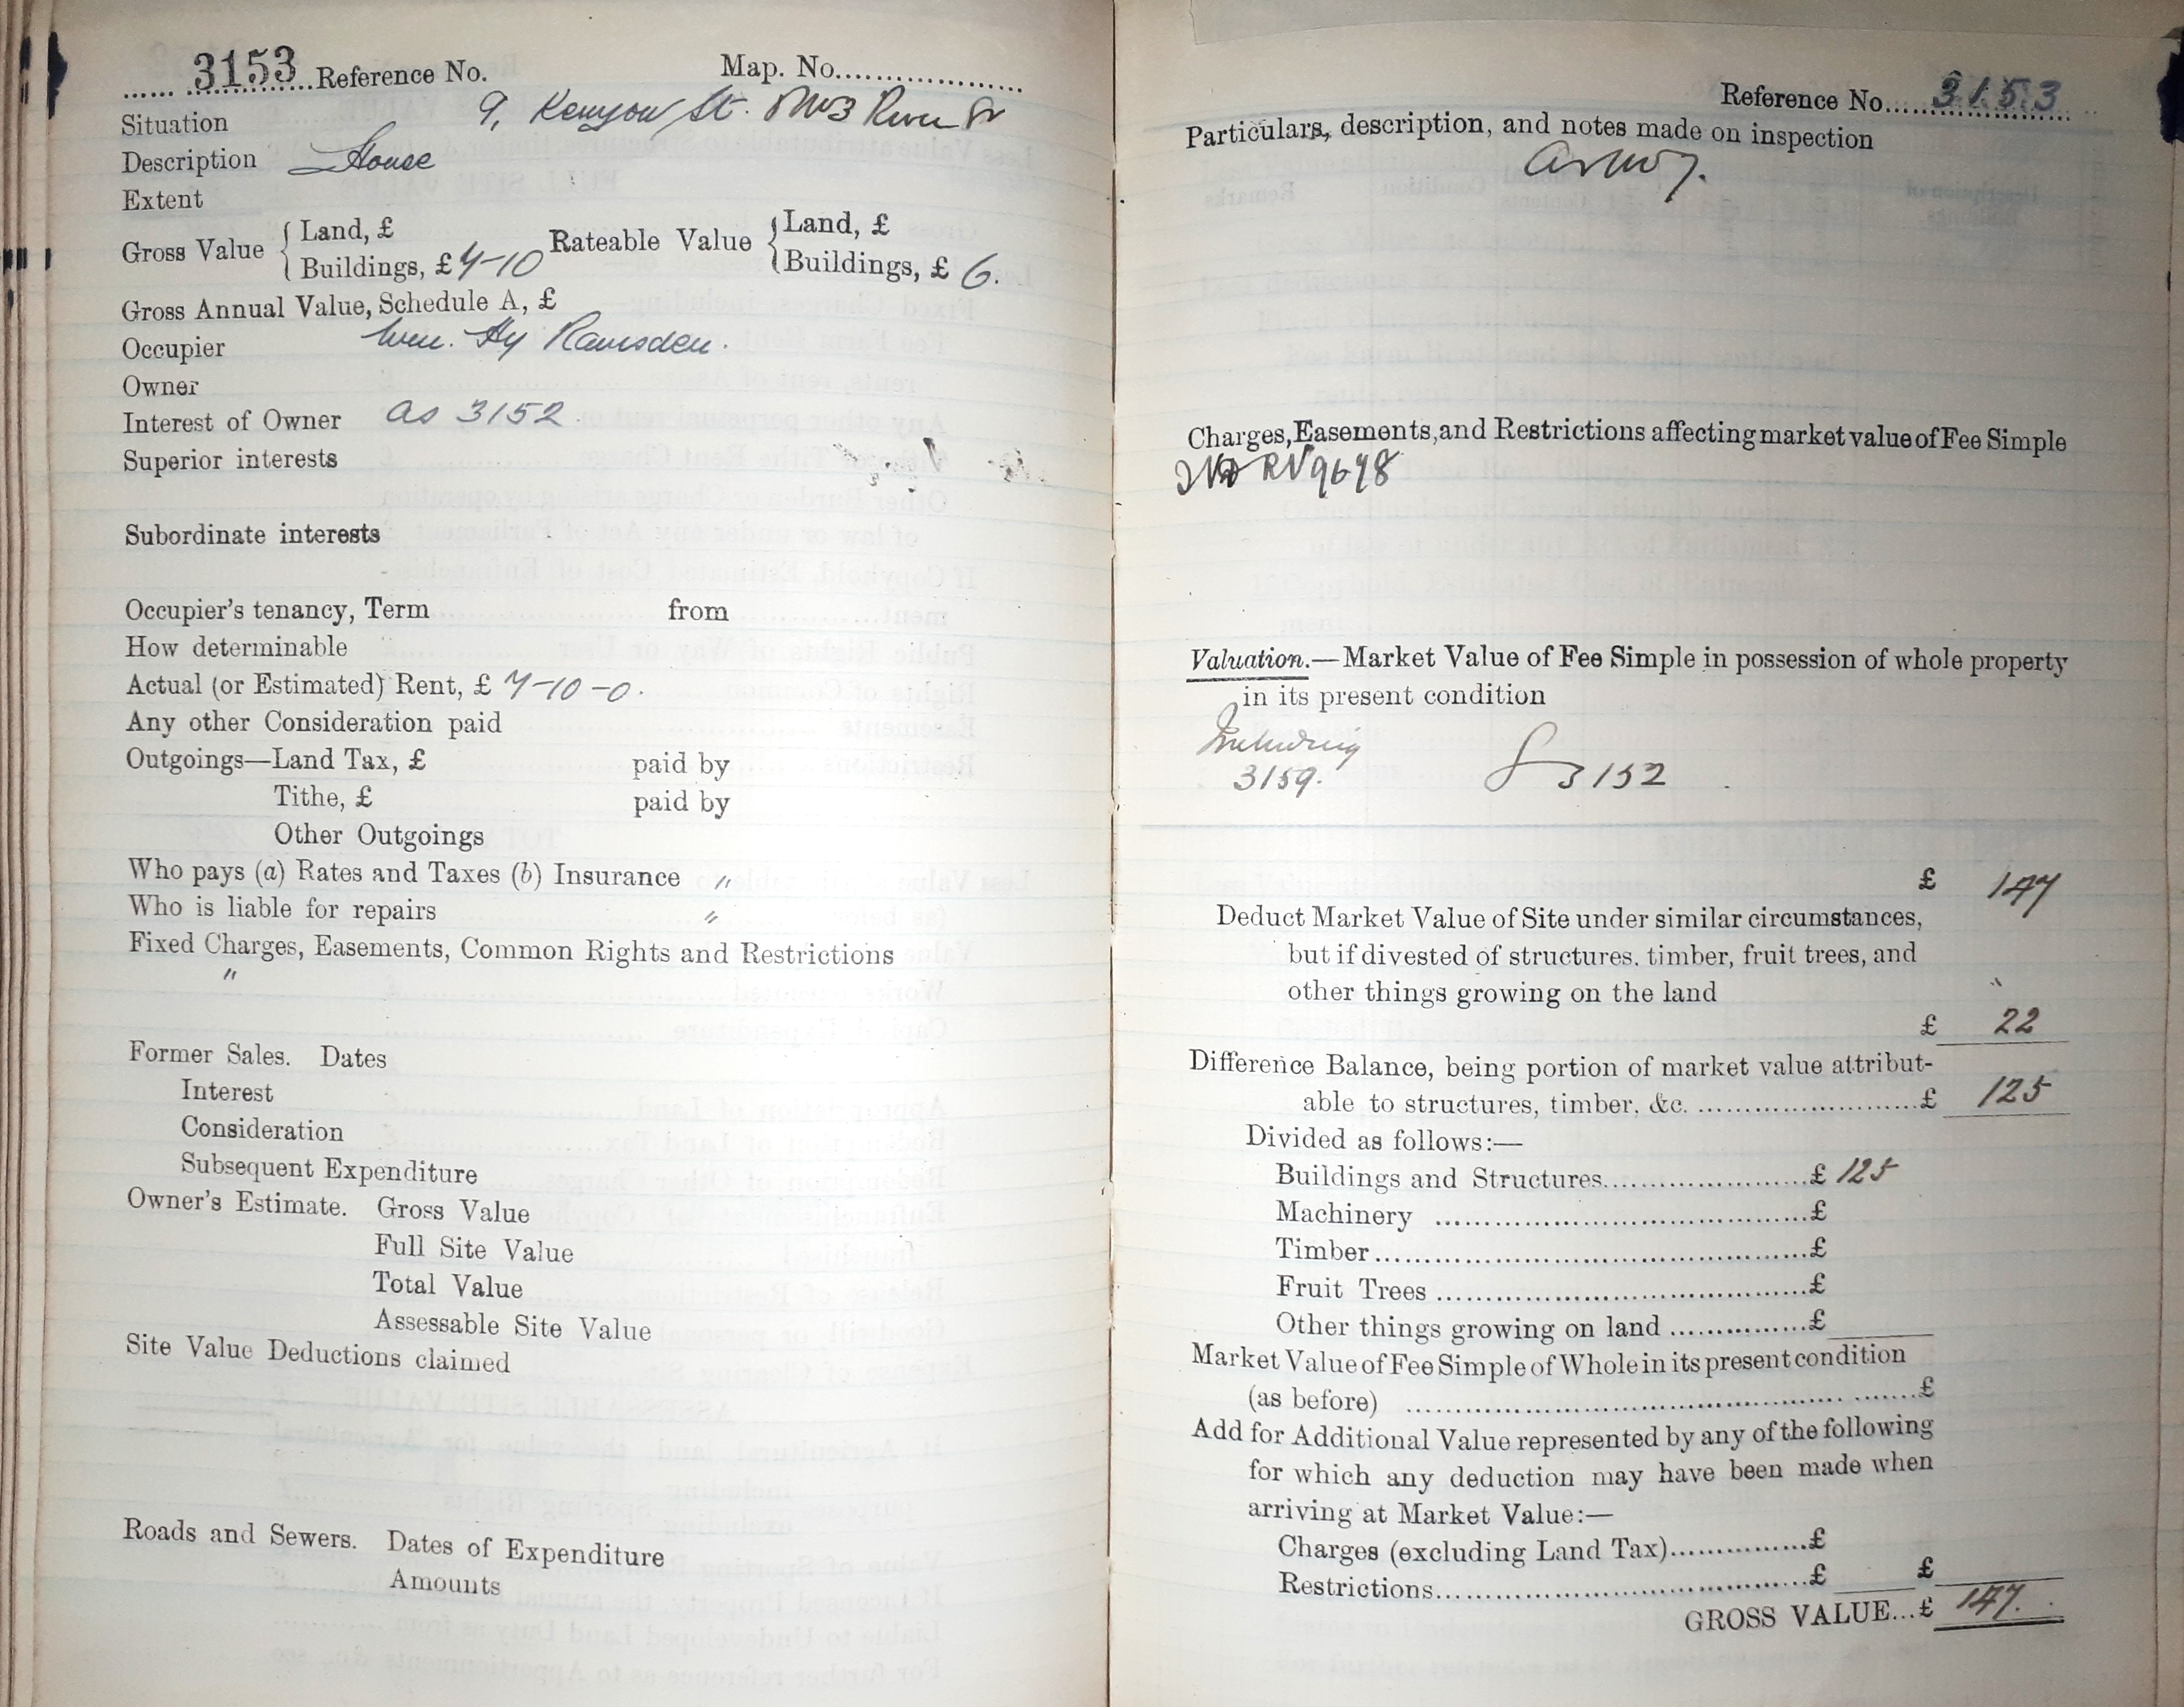 3153 Reference No. Map. No.
Situation 9, Kenyon St. River St
Description House
Extent
Gross Value { Land, £
Buildings, £ 7-10
Rateable Value { Land, £
Buildings, £ 6.
Gross Annual Value, Schedule A, £
Occupier Wm. Hy Ramsden.
Owner
Interest of Owner as 3152
Superior interests
Subordinate interests
Occupier's tenancy, Term from
How determinable
Actual (or Estimated) Rent, £ 7-10-0.
Any other Consideration paid
Outgoings—Land Tax, £ paid by
Tithe, £ paid by
Other Outgoings
Who pays (a) Rates and Taxes (b) Insurance "
Who is liable for repairs "
Fixed Charges, Easements, Common Rights and Restrictions
"
Former Sales. Dates
Interest
Consideration
Subsequent Expenditure
Owner's Estimate. Gross Value
Full Site Value
Total Value
Assessable Site Value
Site Value Deductions claimed
Roads and Sewers. Dates of Expenditure
Amounts
Reference No. 3153
Particulars, description, and notes made on inspection
Charges, Easements, and Restrictions affecting market value of Fee Simple
Valuation.—Market Value of Fee Simple in possession of whole property
in its present condition
Including
3159. 3152
£ 147
Deduct Market Value of Site under similar circumstances,
but if divested of structures. timber, fruit trees, and
other things growing on the land
£ 22
Difference Balance, being portion of market value attribut-
able to structures, timber, &c. £ 125
Divided as follows:—
Buildings and Structures £ 125
Machinery £
Timber £
Fruit Trees £
Other things growing on land £
Market Value of Fee Simple of Whole in its present condition
(as before) £
Add for Additional Value represented by any of the following
for which any deduction may have been made when
arriving at Market Value:—
Charges (excluding Land Tax) £
Restrictions £ £
GROSS VALUE... £ 147.